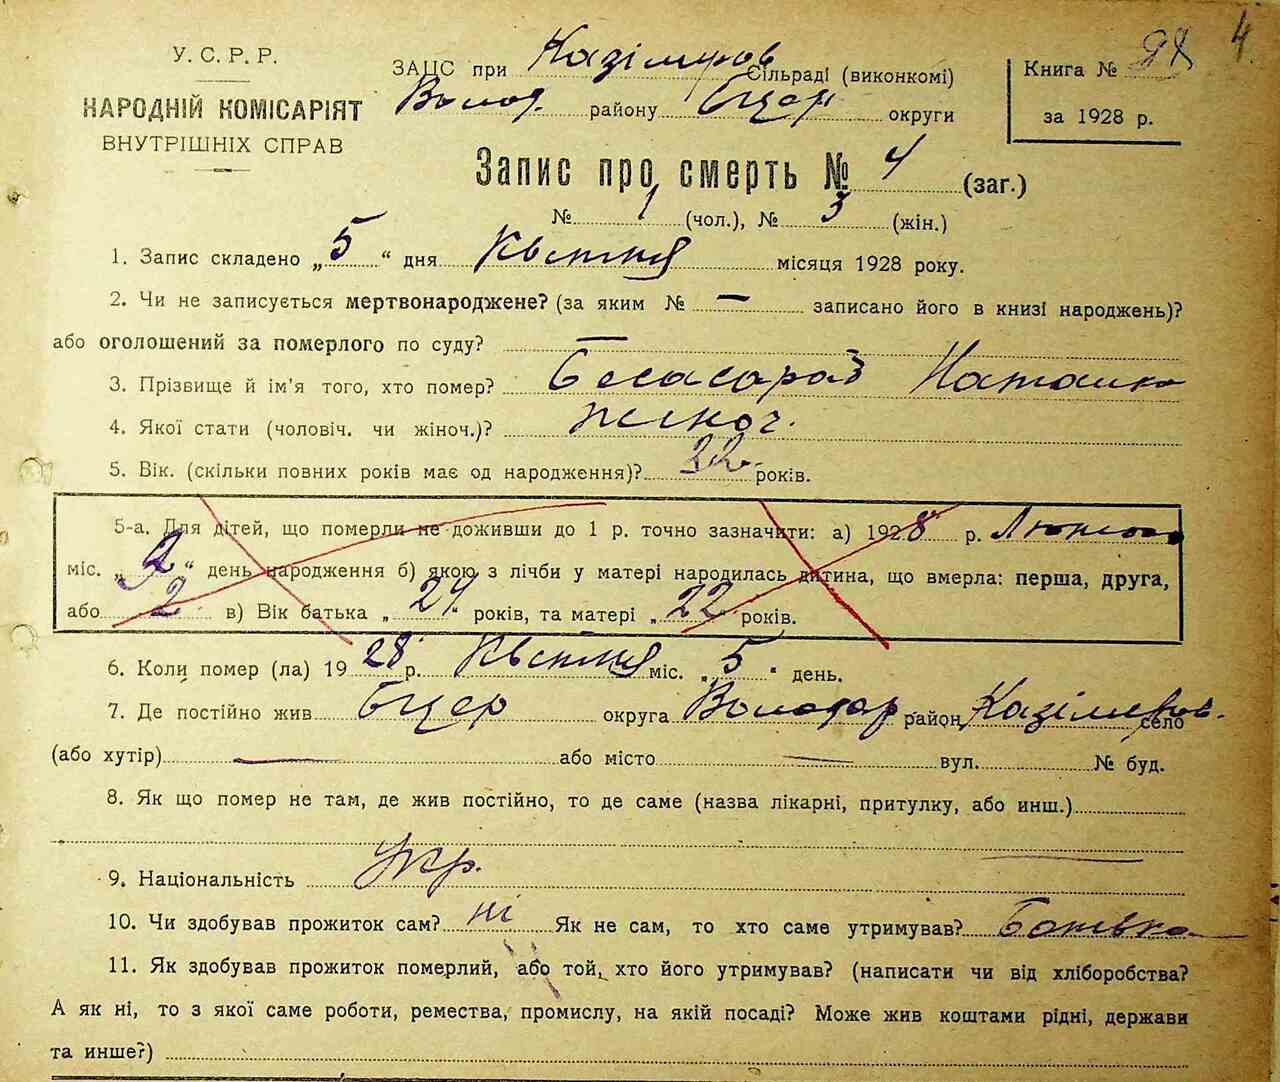 4
У. С. Р. Р.
НАРОДНІЙ КОМІСАРІЯТ
ВНУТРІШНІХ СПРАВ
ЗАЦС при Казімиров Сільраді (виконкомі)
Волод. району Бцер округи
Книга №
за 1928 р.
Запис про смерть № 4 (заг.)
№ 1 (чол.), № 3 (жін.)
1. Запис складено „5“ дня Квітня місяця 1928 року.
2. Чи не записується мертвонароджене? (за яким № — записано його в книзі народжень)?
або оголошений за померлого по суду? —
3. Прізвище й ім'я того, хто помер? Бесасараб Наташка
4. Якої стати (чоловіч. чи жіноч.)? жіноч.
5. Вік. (скільки повних років має од народження)? 22 років.
5-а. Для дітей, що померли не доживши до 1 р. точно зазначити: а) 1928 р. Лютого
міс. „2“ день народження б) якою з лічби у матері народилась дитина, що вмерла: перша, друга,
або 2 в) Вік батька „24 років, та матері „22 років.
6. Коли помер (ла) 1928 р. Квітня міс. „5" день.
7. Де постійно жив Бцер округа Володар район Казімиров. село
(або хутір) — або місто — вул. № буд.
8. Як що помер не там, де жив постійно, то де саме (назва лікарні, притулку, або инш.)
9. Національність Укр.
10. Чи здобував прожиток сам? ні Як не сам, то хто саме утримував? Батько
11. Як здобував прожиток померлий, або той, хто його утримував? (написати чи від хліборобства?
А як ні, то з якої саме роботи, ремества, промислу, на якій посаді? Може жив коштами рідні, держави
та инше?)